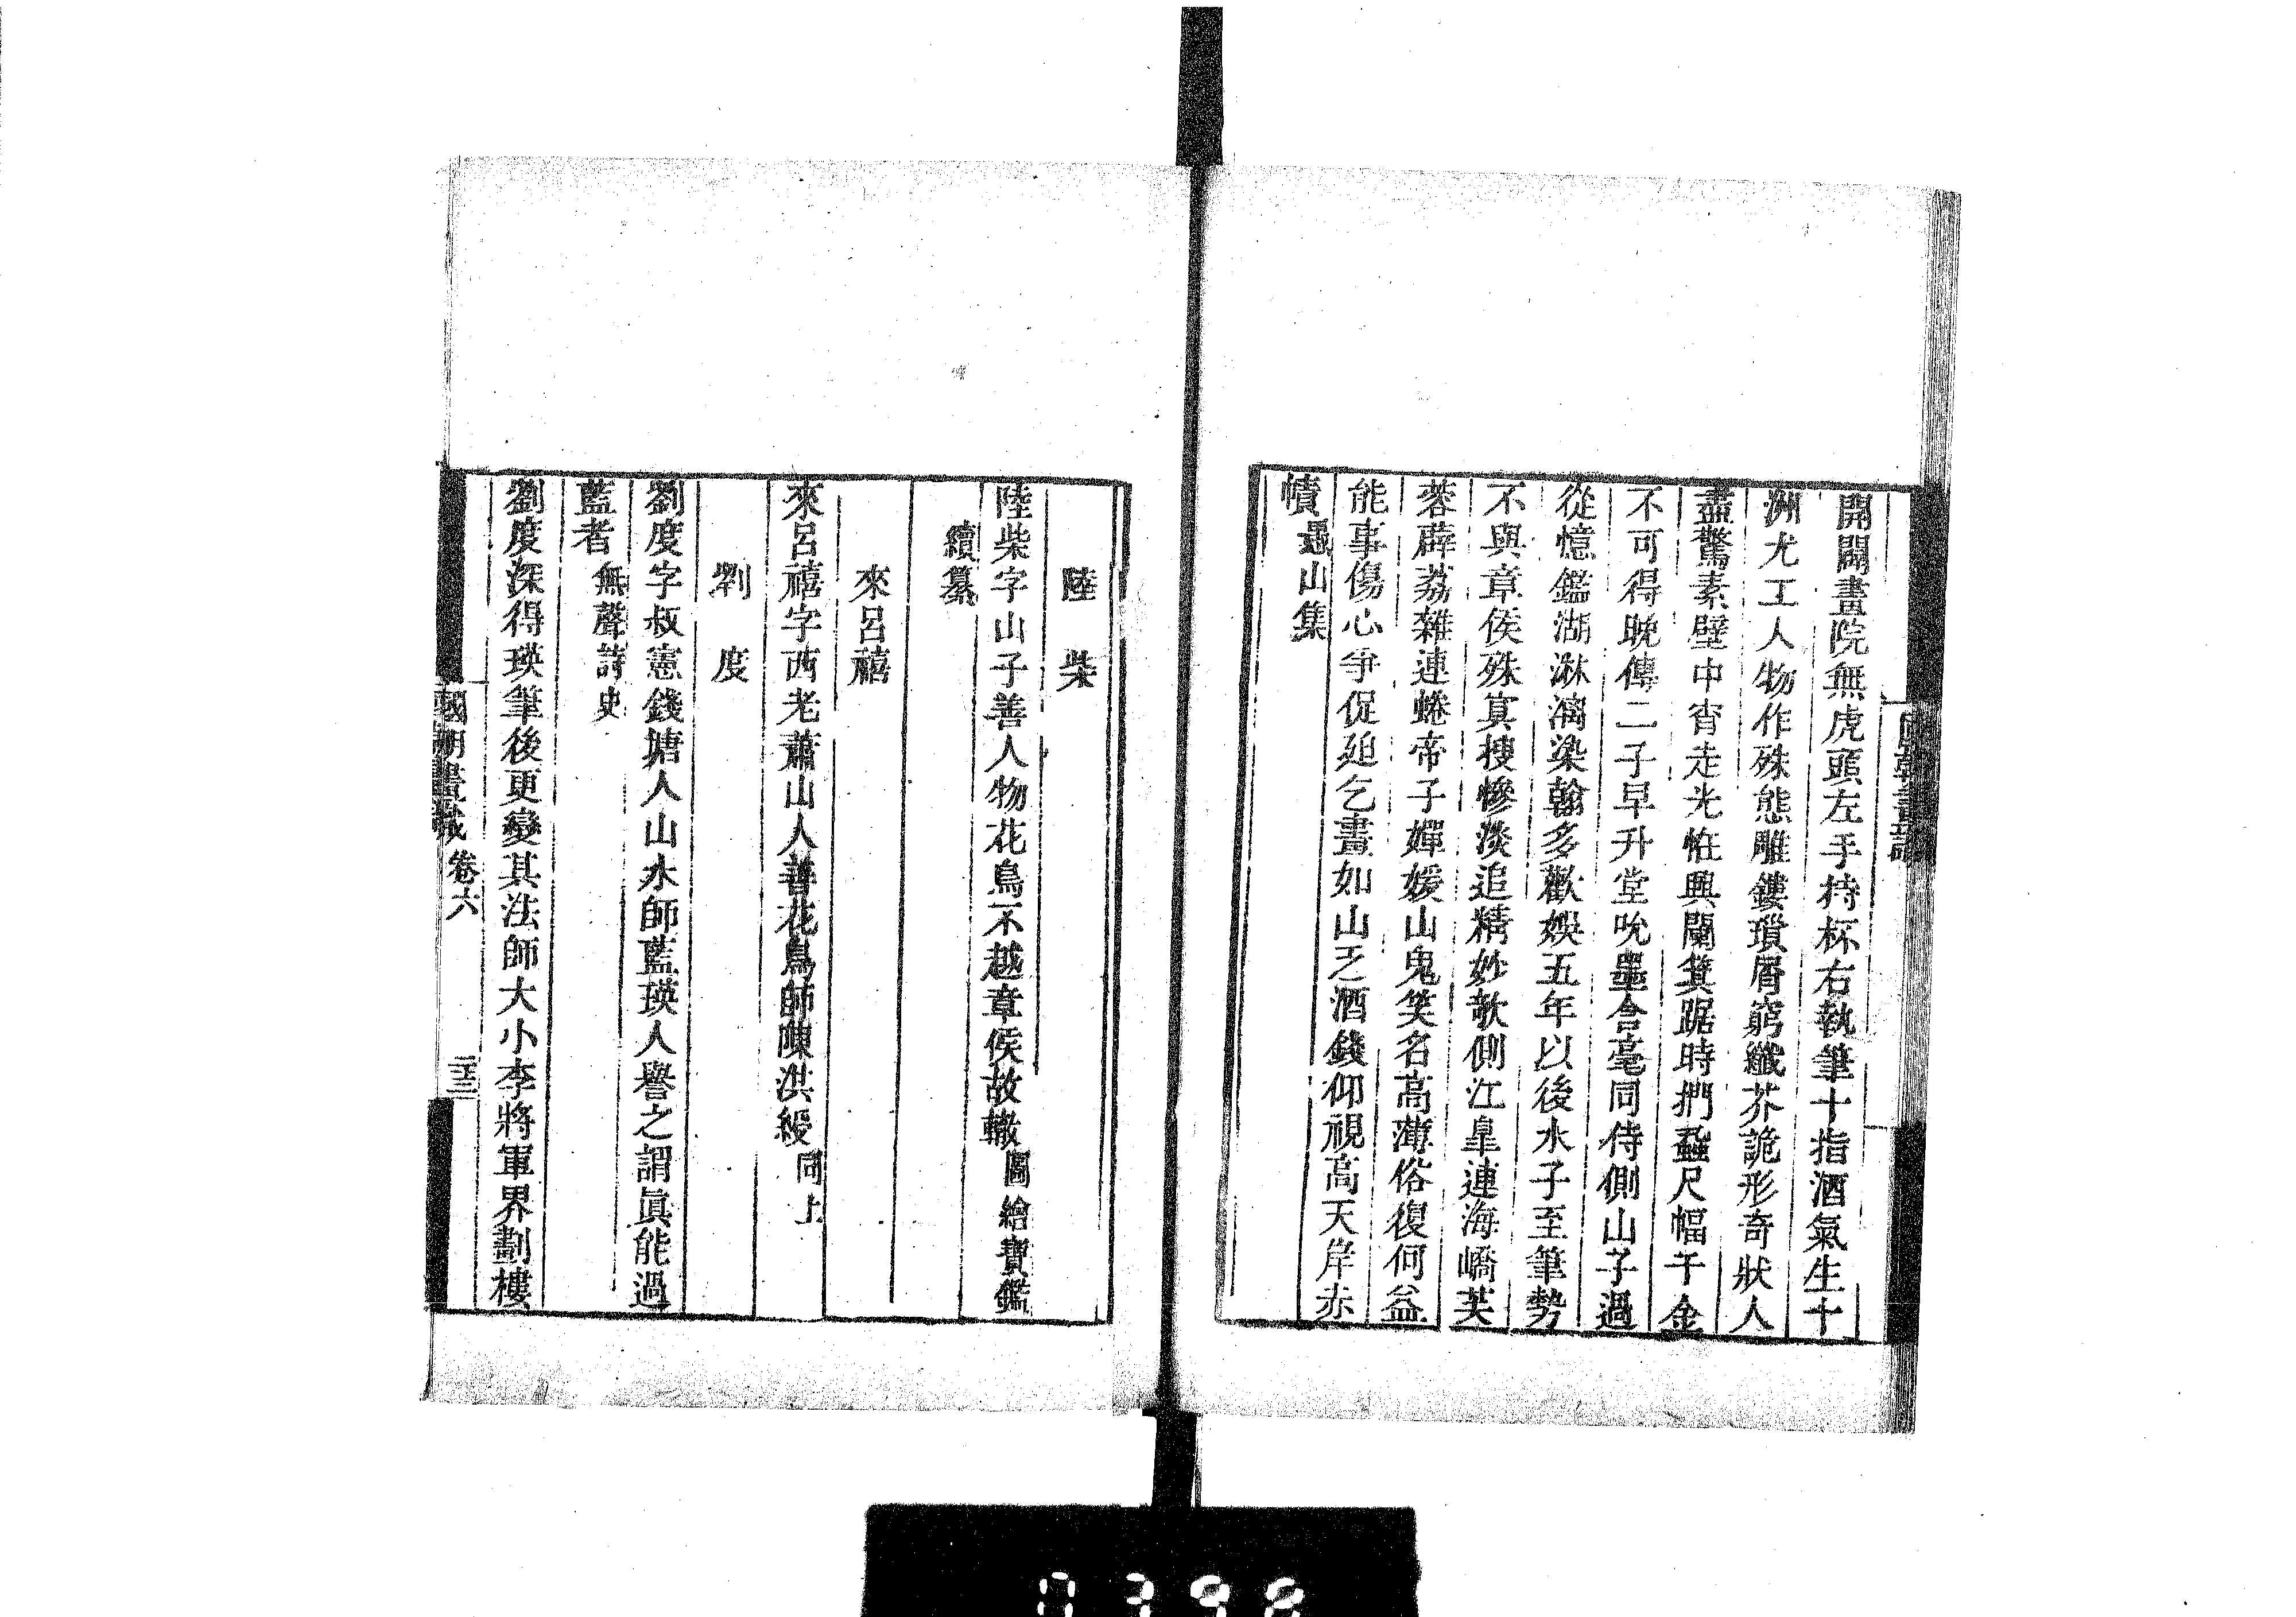 開闢畫院無虎頭左手持杯右執筆十指酒氣生十
洲尤工人物作殊態雕鏤瑣屑窮纖芥詭形奇狀人
盡驚素壁中宵走光恠興闌箕踞時捫蝨尺幅千金
不可得晚傳二子早升堂吮墨含毫同侍側山子過
從憶鑑湖淋漓染翰多歡娛五年以後水子至筆勢
不與章侯殊寘搜慘淡追精妙欹側江皐連海嶠芙
蓉薜荔雜連蜷帝子嬋媛山鬼笑名高薄俗復何益
能事傷心爭促廹乞畫如山乏酒錢仰視高天岸赤
幘 山集
陸柴
陸柴字山子善人物花鳥不越章侯故轍圖繪寶鑑
續纂
來呂禧
來呂禧字西老蕭山人善花鳥師陳洪綬同上
劉度
劉度字叔憲錢塘人山水師藍瑛人譽之謂眞能過
藍者無聲詩史
劉度深得瑛筆後更變其法師大小李將軍界劃樓
國朝畫識 卷六
0398